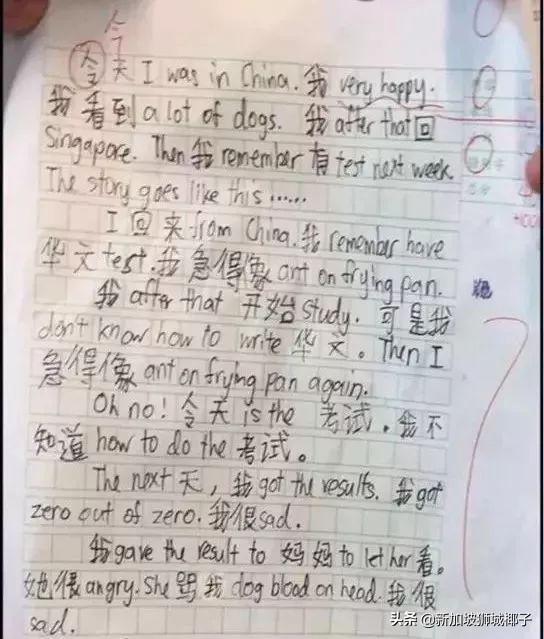 今
令天 I was in China. 我 very happy.
我看到 a lot of dogs. 我 after that 回
Singapore. Then 我 remember 有 test next week.
The story goes like this ......
I 回来 from China. 我 remember have
华文 test. 我急得像 ant on frying pan.
我 after that 开始 study. 可是我
don't know how to write 华文。 Then I
急得像 ant on frying pan again.
Oh no! 令天 is the 考试. 我不
知道 how to do the 考试。
The next 天, 我 got the results. 我 got
zero out of zero. 我很 sad.
我 gave the result to 妈妈 to let her 看。
她很 angry. She 骂我 dog blood on head. 我很
sad.
头条 @新加坡狮城椰子